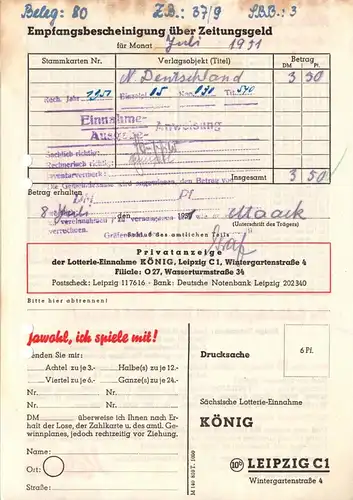 Beleg: 80 Z.B.: 37/9 S.B.B.: 3
Empfangsbescheinigung über Zeitungsgeld
für Monat Juli 1951
Stammkarten Nr. Verlagsobjekt (Titel) Betrag
DM Pf.
N. Deutschland 3 50
Rech. Jahr 1951 Einzelpl. 05 Tit. 540
Einnahme-
Ausgabe- Anweisung
Sachlich richtig:
Rechnerisch richtig:
Inventarvermerk:
Insgesamt 3 50
Betrag erhalten
DM Pf
den 1951 Maack
vereinnahmen zu verausgaben
(Unterschrift des Trägers)
verrechnen.
Schluß des amtlichen Teils
Graf
Privatanzeige
der Lotterie-Einnahme KÖNIG, Leipzig C 1, Wintergartenstraße 4
Filiale: O 27, Wasserturmstraße 34
Postscheck: Leipzig 117616 · Bank: Deutsche Notenbank Leipzig 202340
Bitte hier abtrennen!
Jawohl, ich spiele mit!
Senden Sie mir:
Achtel zu je 3.- Halbe(s) zu je 12.-
Viertel zu je 6.- Ganze(s) zu je 24.-
Nr. Nr.
Nr. Nr.
DM überweise ich Ihnen nach Er-
halt der Lose, der Zahlkarte u. des amtl. Ge-
winnplanes, jedoch rechtzeitig vor Ziehung.
Name:
Ort:
Straße:
Drucksache
6 Pf.
Sächsische Lotterie-Einnahme
KÖNIG
10b LEIPZIG C1
Wintergartenstraße 4